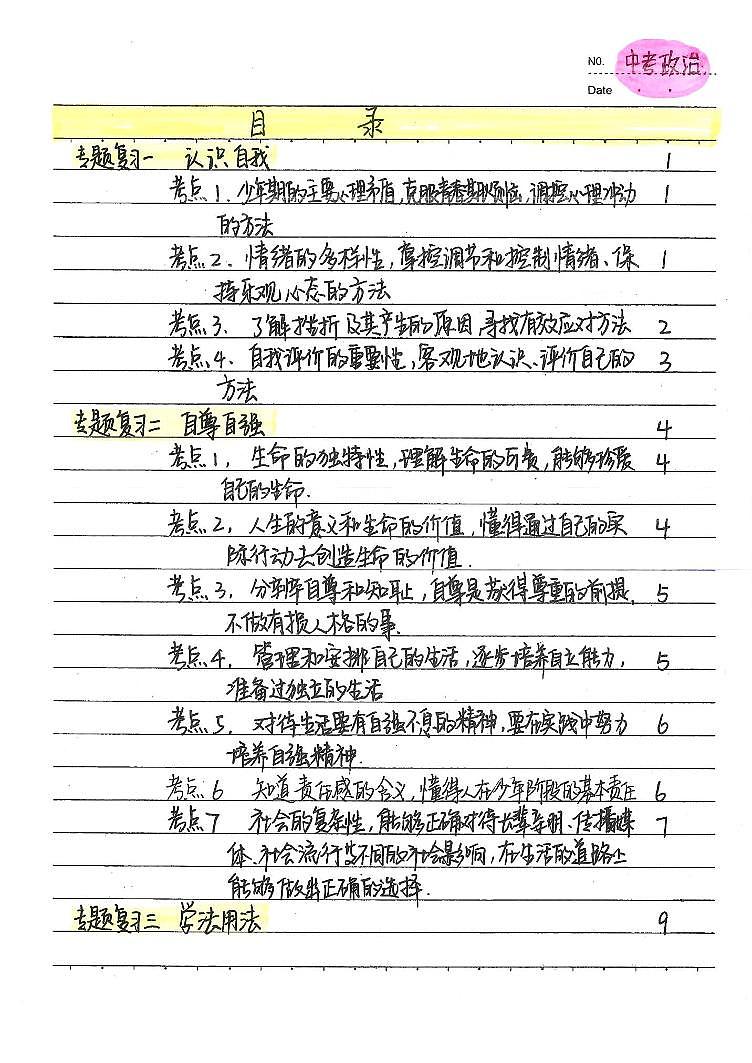 NO. 中考政治
Date
目 录
专题复习一 认识自我 1
考点1. 少年期的主要心理矛盾,克服青春期烦恼,调控心理冲动 1
的方法
考点2. 情绪的多样性,掌控调节和控制情绪、保 1
持乐观心态的方法
考点3、了解挫折及其产生的原因 寻找有效应对方法 2
考点4. 自我评价的重要性,客观地认识、评价自己的 3
方法
专题复习二 自尊自强 4
考点1, 生命的独特性,理解生命的可贵,能够珍爱 4
自己的生命.
考点2, 人生的意义和生命的价值,懂得通过自己的实 4
际行动去创造生命的价值.
考点3, 分辨自尊和知耻,自尊是获得尊重的前提, 5
不做有损人格的事.
考点4. 管理和安排自己的生活,逐步培养自立能力, 5
准备过独立的生活
考点5. 对待生活要有自强不息的精神,要在实践中努力 6
培养自强精神.
考点6 知道责任感的含义,懂得人在少年阶段的基本责任 6
考点7 社会的复杂性,能够正确对待长辈亲朋、传播媒 7
体、社会流行等不同的社会影响,在生活的道路上
能够做出正确的选择.
专题复习三 学法用法 9